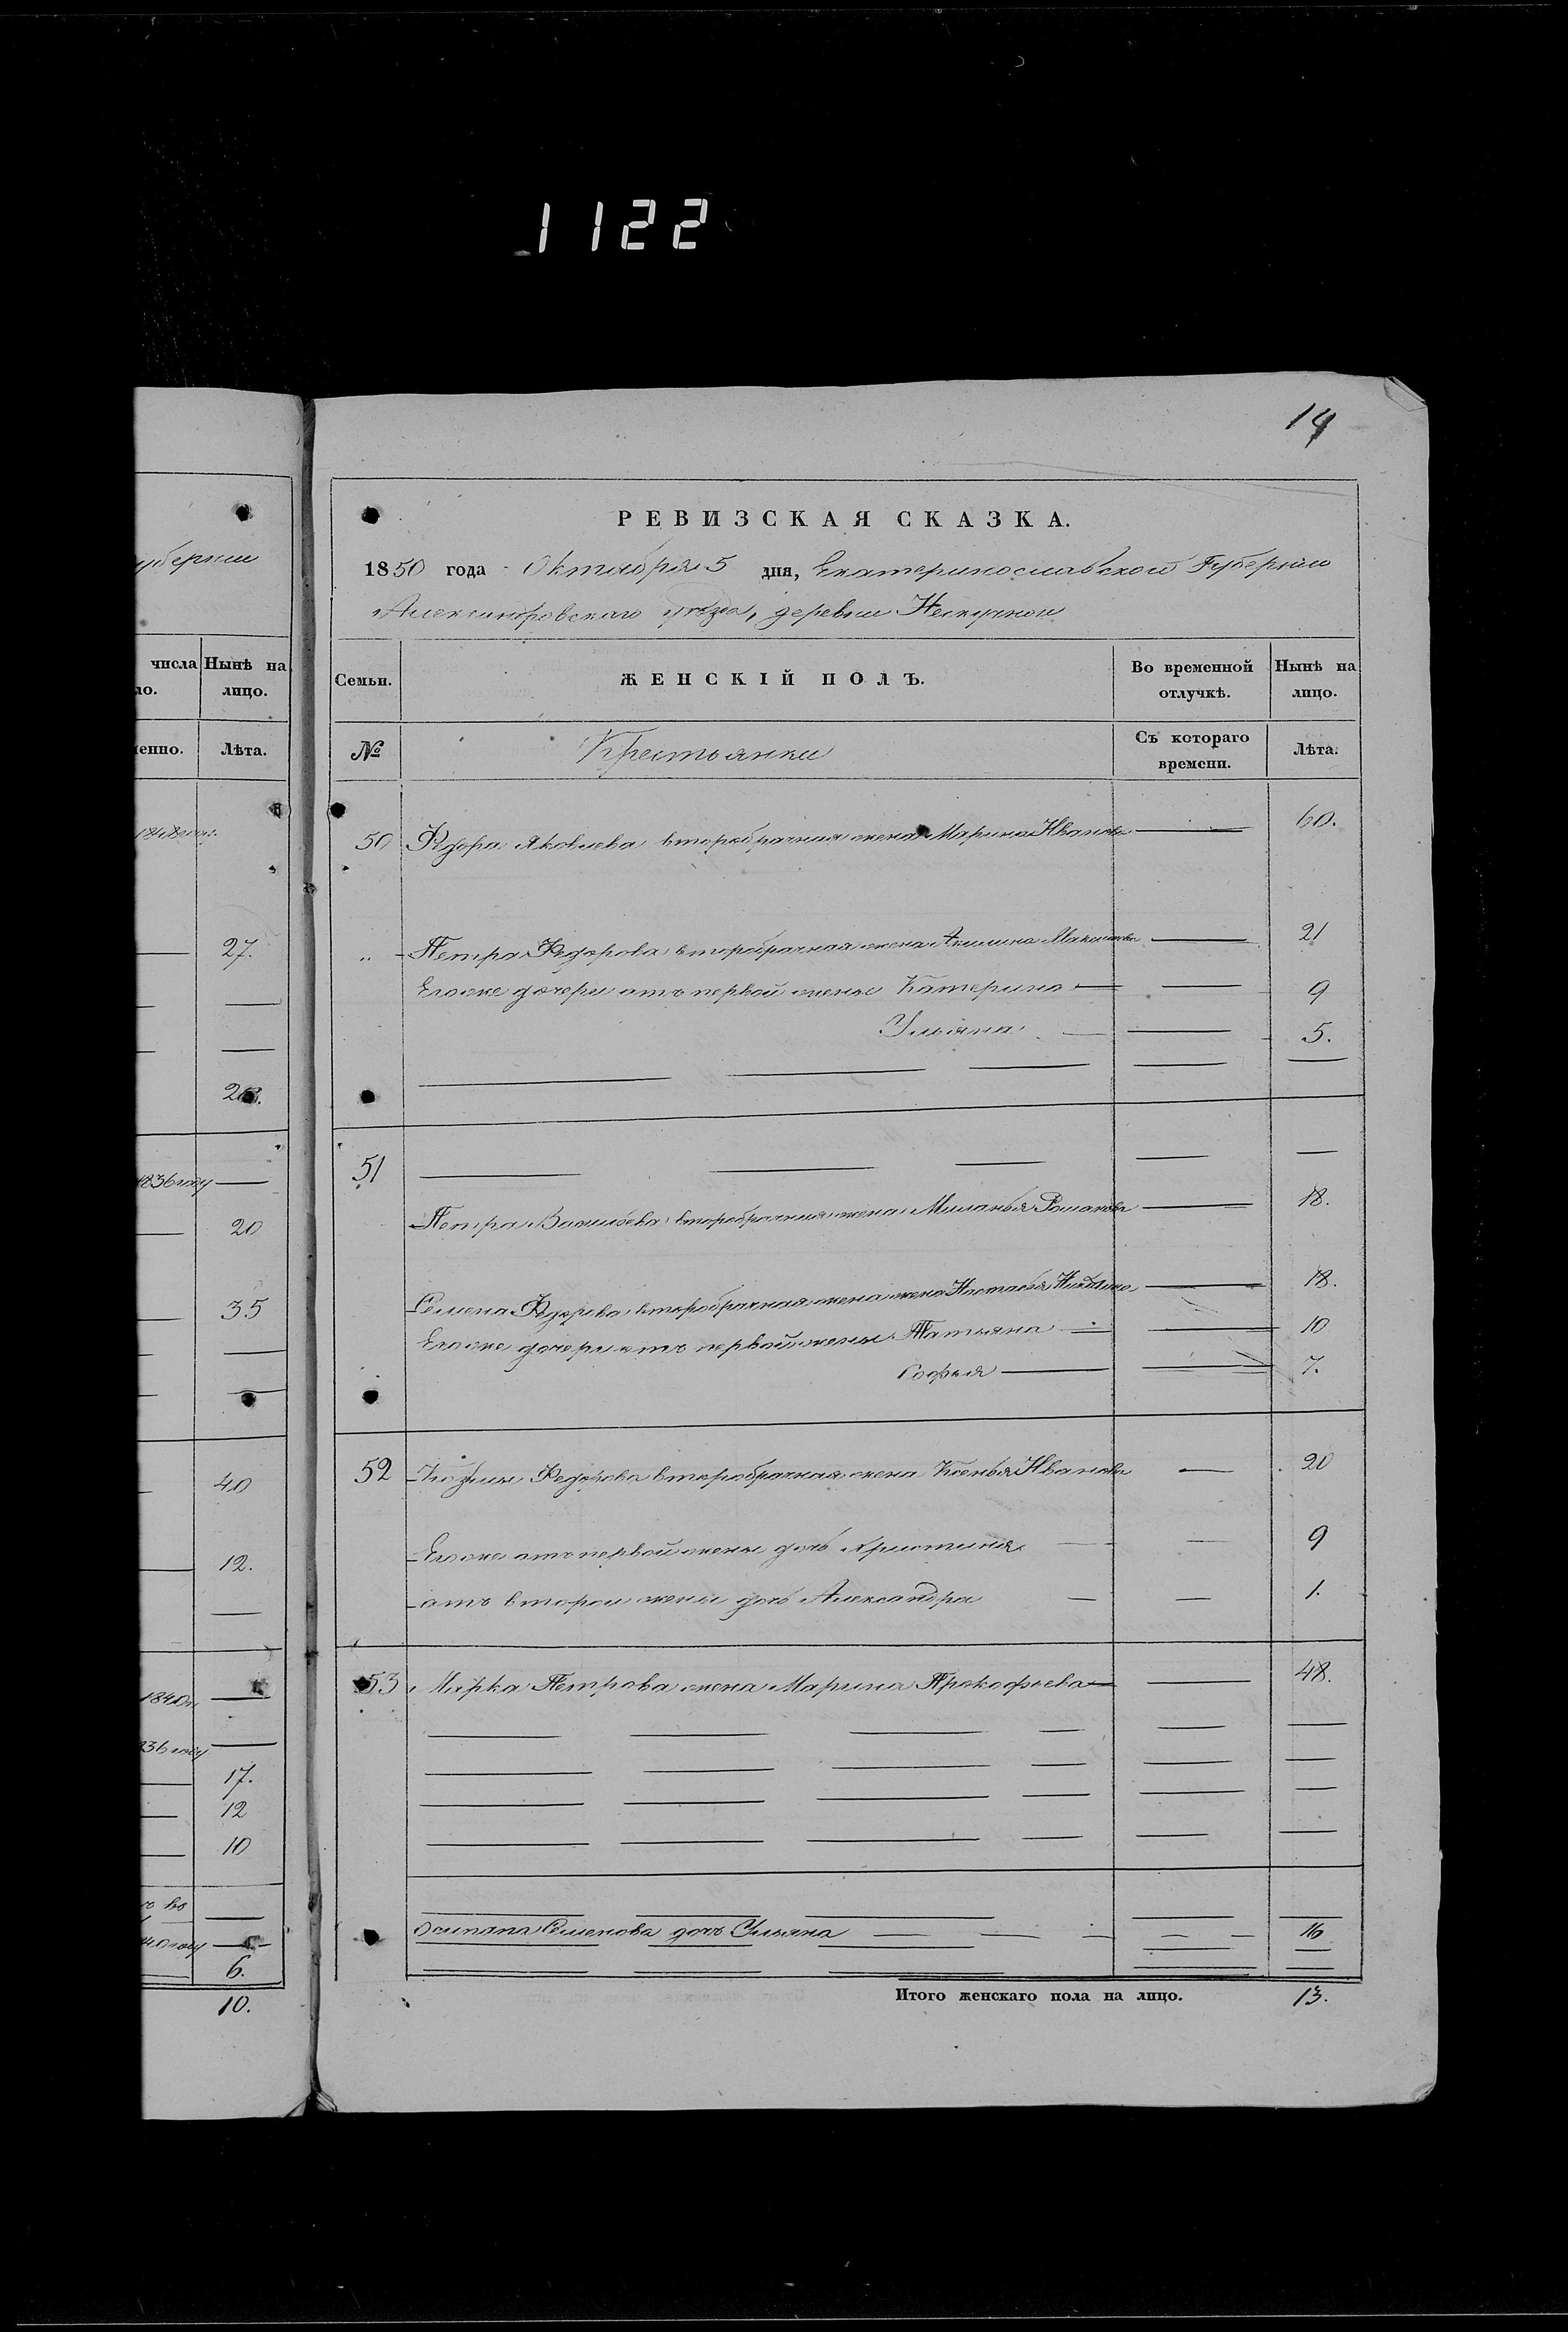 1122
14
убернии
числа Нынѣ на
ло. лицо.
енно. Лѣта.
27.
1836 году
20
35
40
12.
1840
836 году
17.
12
10
40 году
6.
10.
РЕВИЗСКАЯ СКАЗКА.
1850 года Октября 5 дня, Екатеринославской Губерніи
Александровскаго уѣзда, деревни Нескучной
Семьи. ЖЕНСКІЙ ПОЛЪ. Во временной отлучкѣ. Нынѣ на лицо.
№ Крестьянки Съ котораго времени. Лѣта.
50 Федора Яковлева второбрачная жена Марина Иванова 60.
„ Петра Федорова второбрачная жена Акилина 21
Егоже дочери отъ первой жены Катерина 9
Ульяна 5.
51
Петра Васильева второбрачная жена Миланья Романова 18.
Семена Федорова второбрачная жена жена Настасья 18.
Егоже дочери отъ первой жены Татьяна 10
Софья 7.
52 Козьмы Федорова второбрачная жена Ксенья Иванова 20
Егоже отъ первой жены дочь Христина 9
отъ второй жены дочь Александра 1.
53 Марка Петрова жена Марина Прокофьева 48.
Семенова дочь Ульяна 16
Итого женскаго пола на лицо. 13.